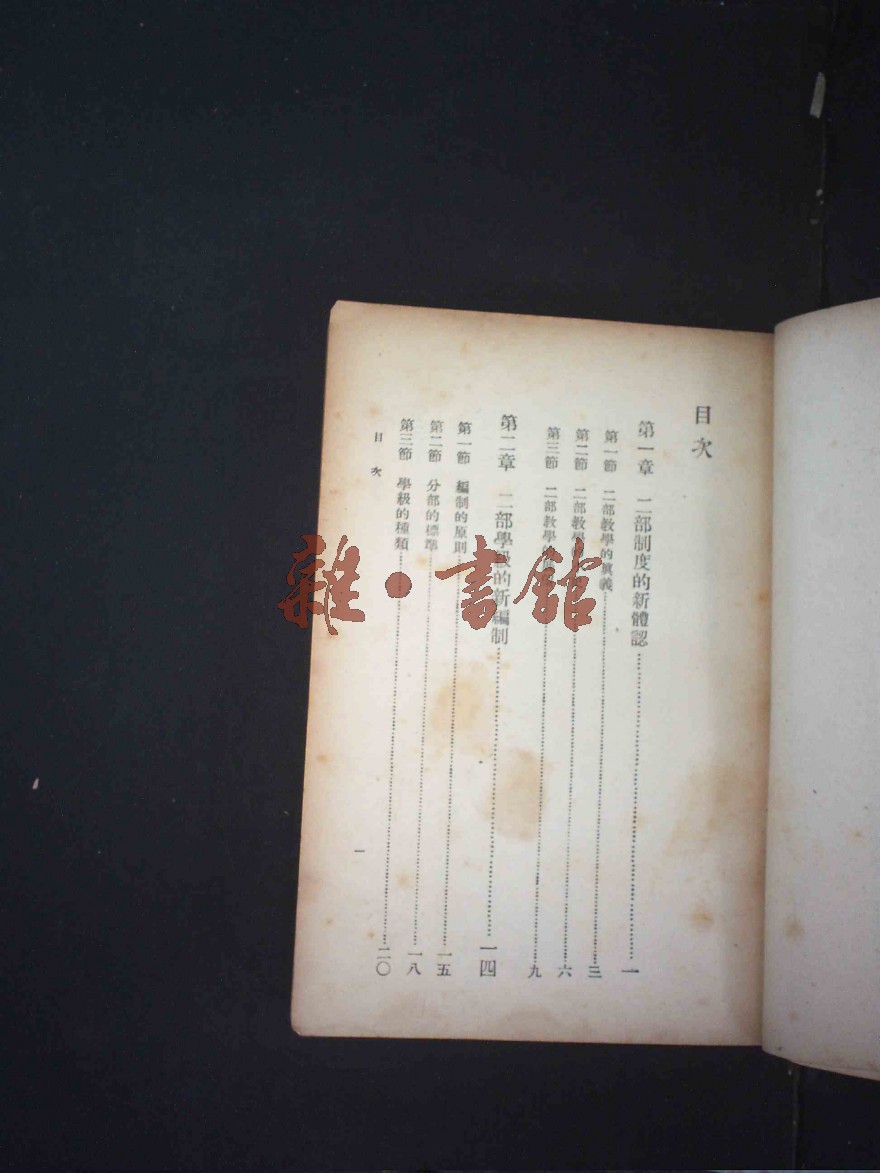 目次
第一章 二部制度的新體認……一
第一節 二部教學的真義……三
第二節 二部教學……六
第三節 二部教學……九
第二章 二部學級的新編制……一四
第一節 編制的原則……一五
第二節 分部的標準……一八
第三節 學級的種類……二〇
目次
一
雜·書館